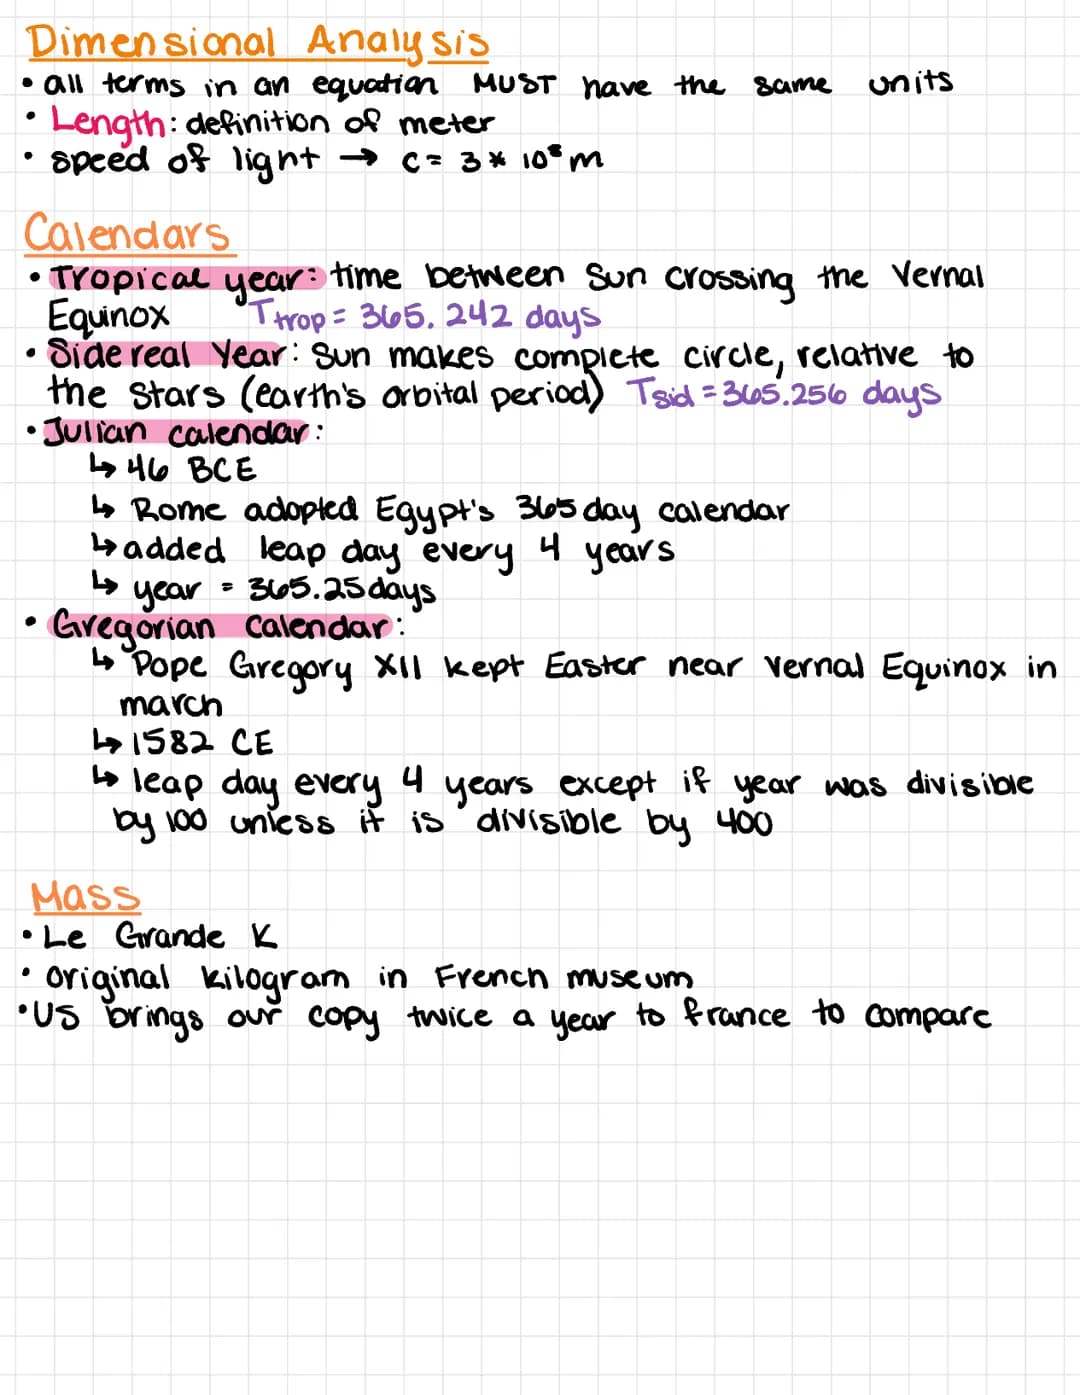 Dimensional Analysis
• all terms in an equation MUST have the same units
• Length: definition of meter
• speed of light → c = 3 * 10⁸ m
Calendars
• Tropical year: time between Sun crossing the Vernal
Equinox Ttrop = 365.242 days
• Sidereal Year: Sun makes complete circle, relative to
the Stars (earth's orbital period) Tsid = 365.256 days
• Julian calendar:
↳ 46 BCE
↳ Rome adopted Egypt's 365 day calendar
↳ added leap day every 4 years
↳ year = 365.25 days
• Gregorian Calendar:
↳ Pope Gregory XII kept Easter near Vernal Equinox in
march
↳ 1582 CE
↳ leap day every 4 years except if year was divisible
by 100 unless it is divisible by 400
Mass
• Le Grande K
• original kilogram in French museum
• US brings our copy twice a year to france to compare